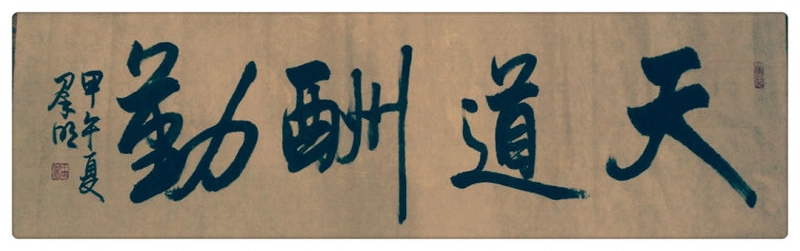 天道酬勤
甲午夏